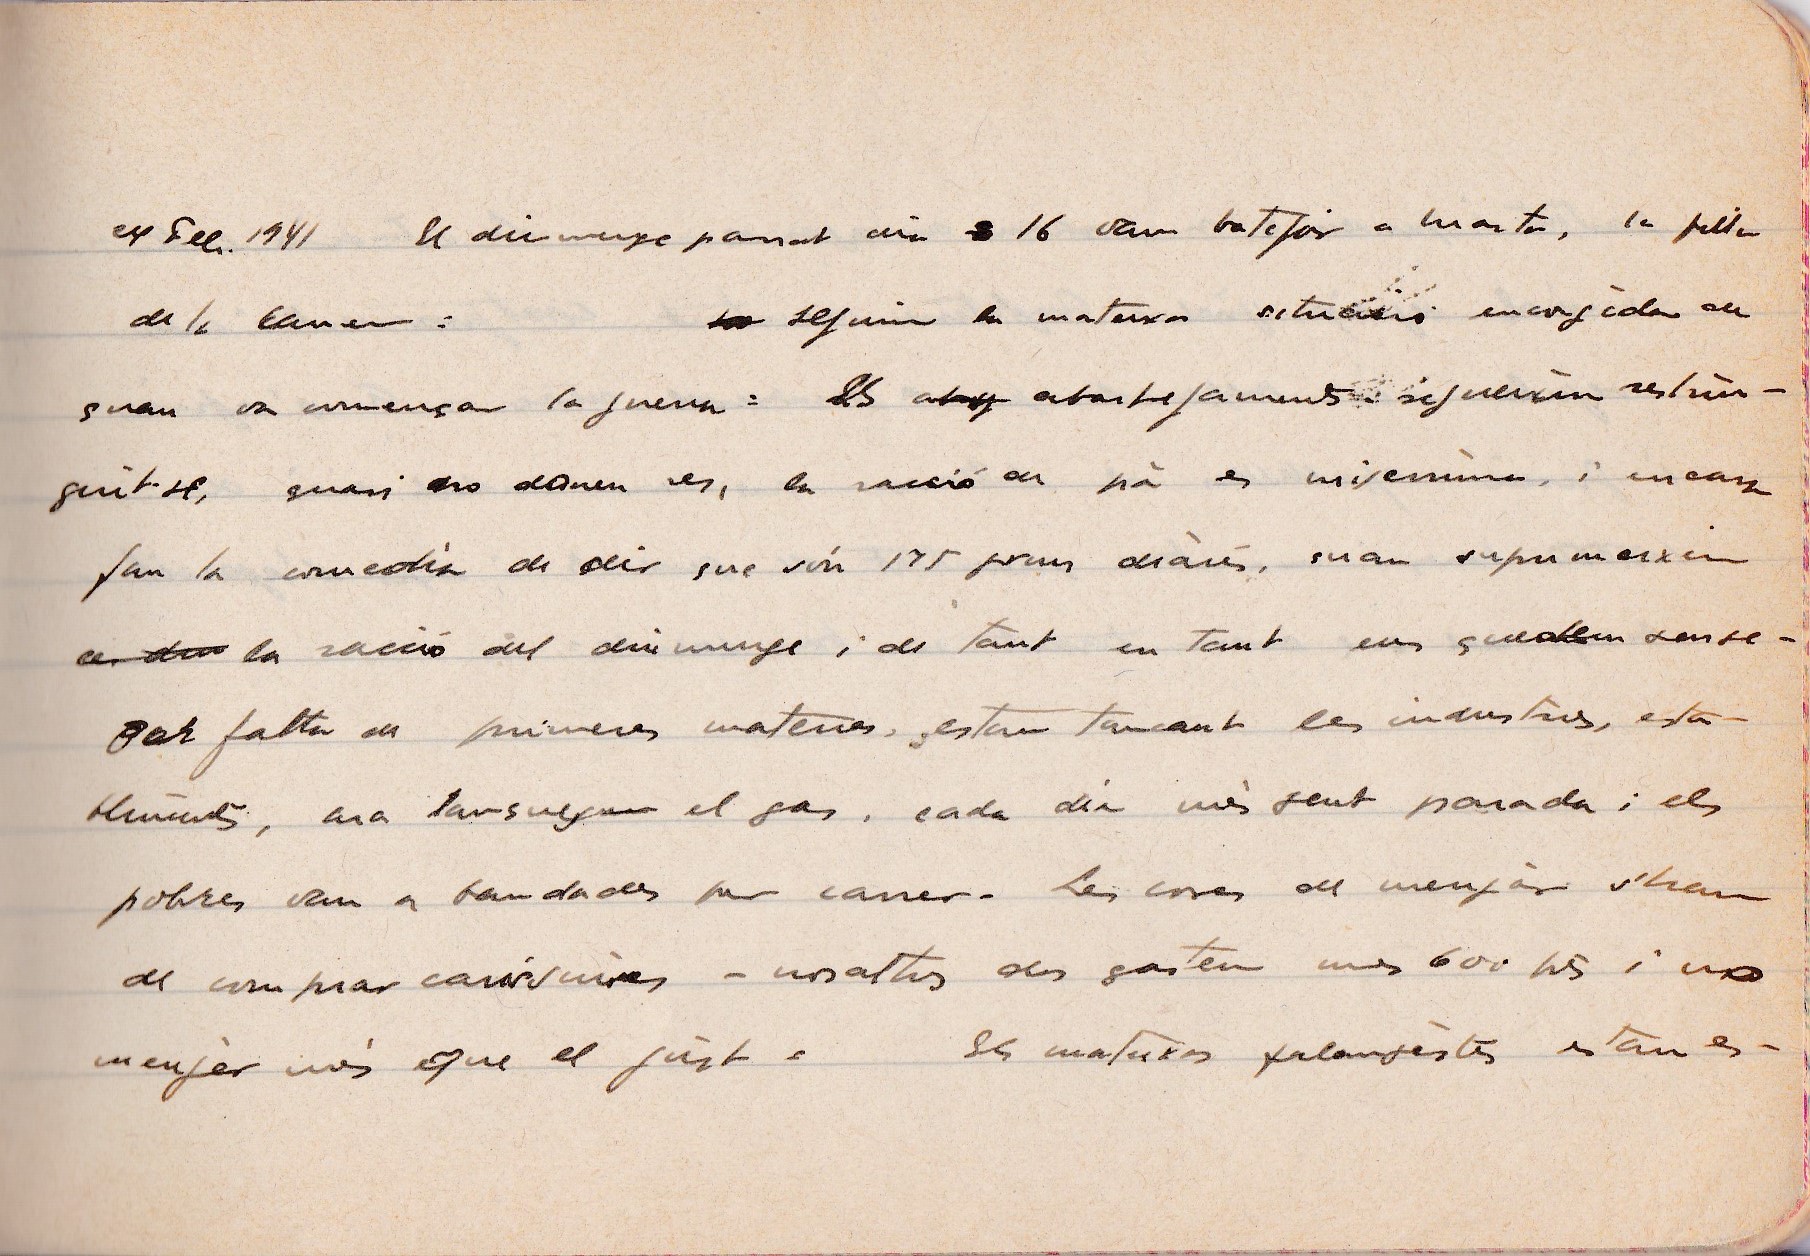 24 Feb. 1941 El diumenge passat dia 16 vam batejar a Marta, la filla
de la Carmen: seguim la mateixa situació encongida de
quan va començar la guerra: Els abastejaments segueixen restrin-
guint-se, quasi no donen res, la ració de pà es miserrima, i encara
fan la comedia de dir que són 175 grams diaris, quan suprimeixen
la ració del diumenge i de tant en tant ens quedem sense-
Per falta de primeres materies, estan tancant les industries, esta-
bliments, ara el gas, cada dia més gent parada i els
pobres van a bandades per carrer. Les coses de menjar s'han
de comprar carissimes - nosaltres dos gastem mes 600 pts i no
menjar més que el just. Els mateixos falangistes estan es-